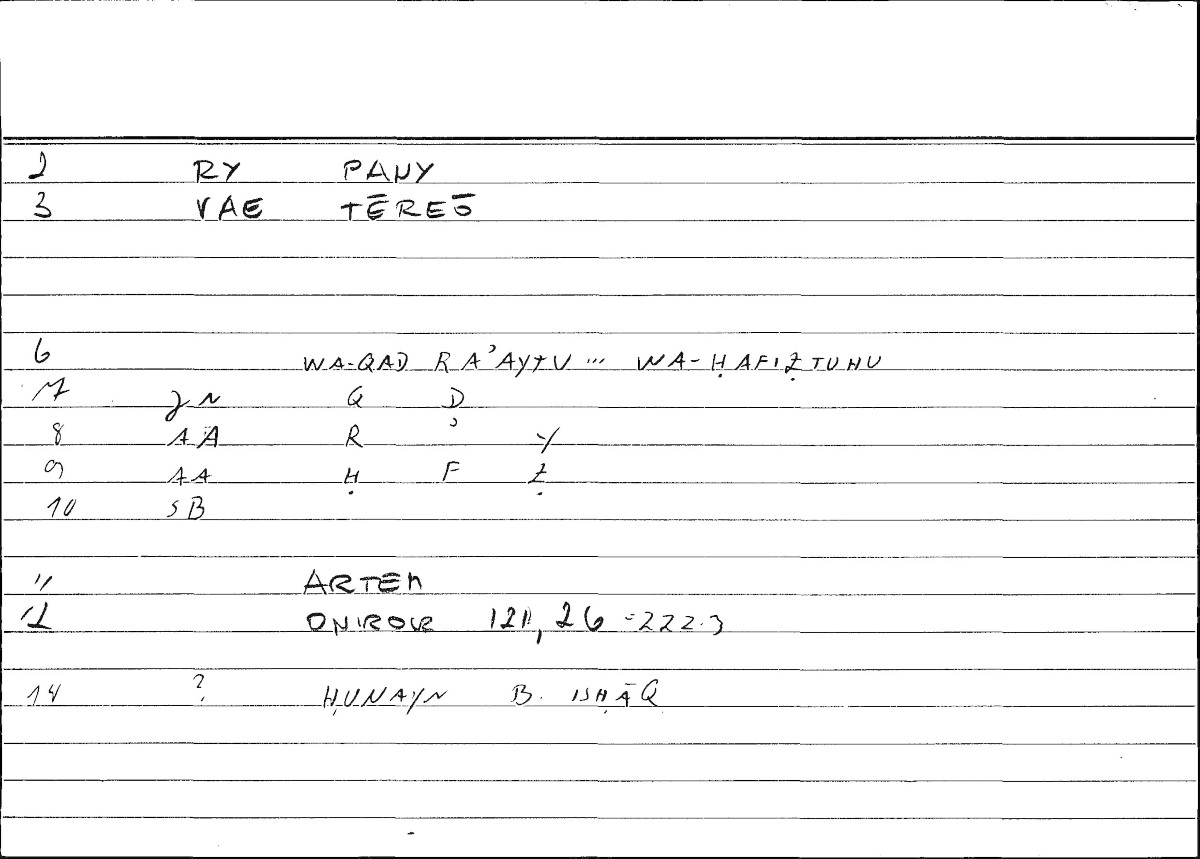 2 RY PANY
3 VAE TĒREŌ
6 WA-QAD RA'AYTU ... WA-ḤAFIẒTUHU
7 JN Q D
8 AA R ' Y
9 AA Ḥ F Ẓ
10 SB
11 ARTEM
12 ONIROCR 121, 26 = 222.3
14 ? ḤUNAYN B. ISḤĀQ